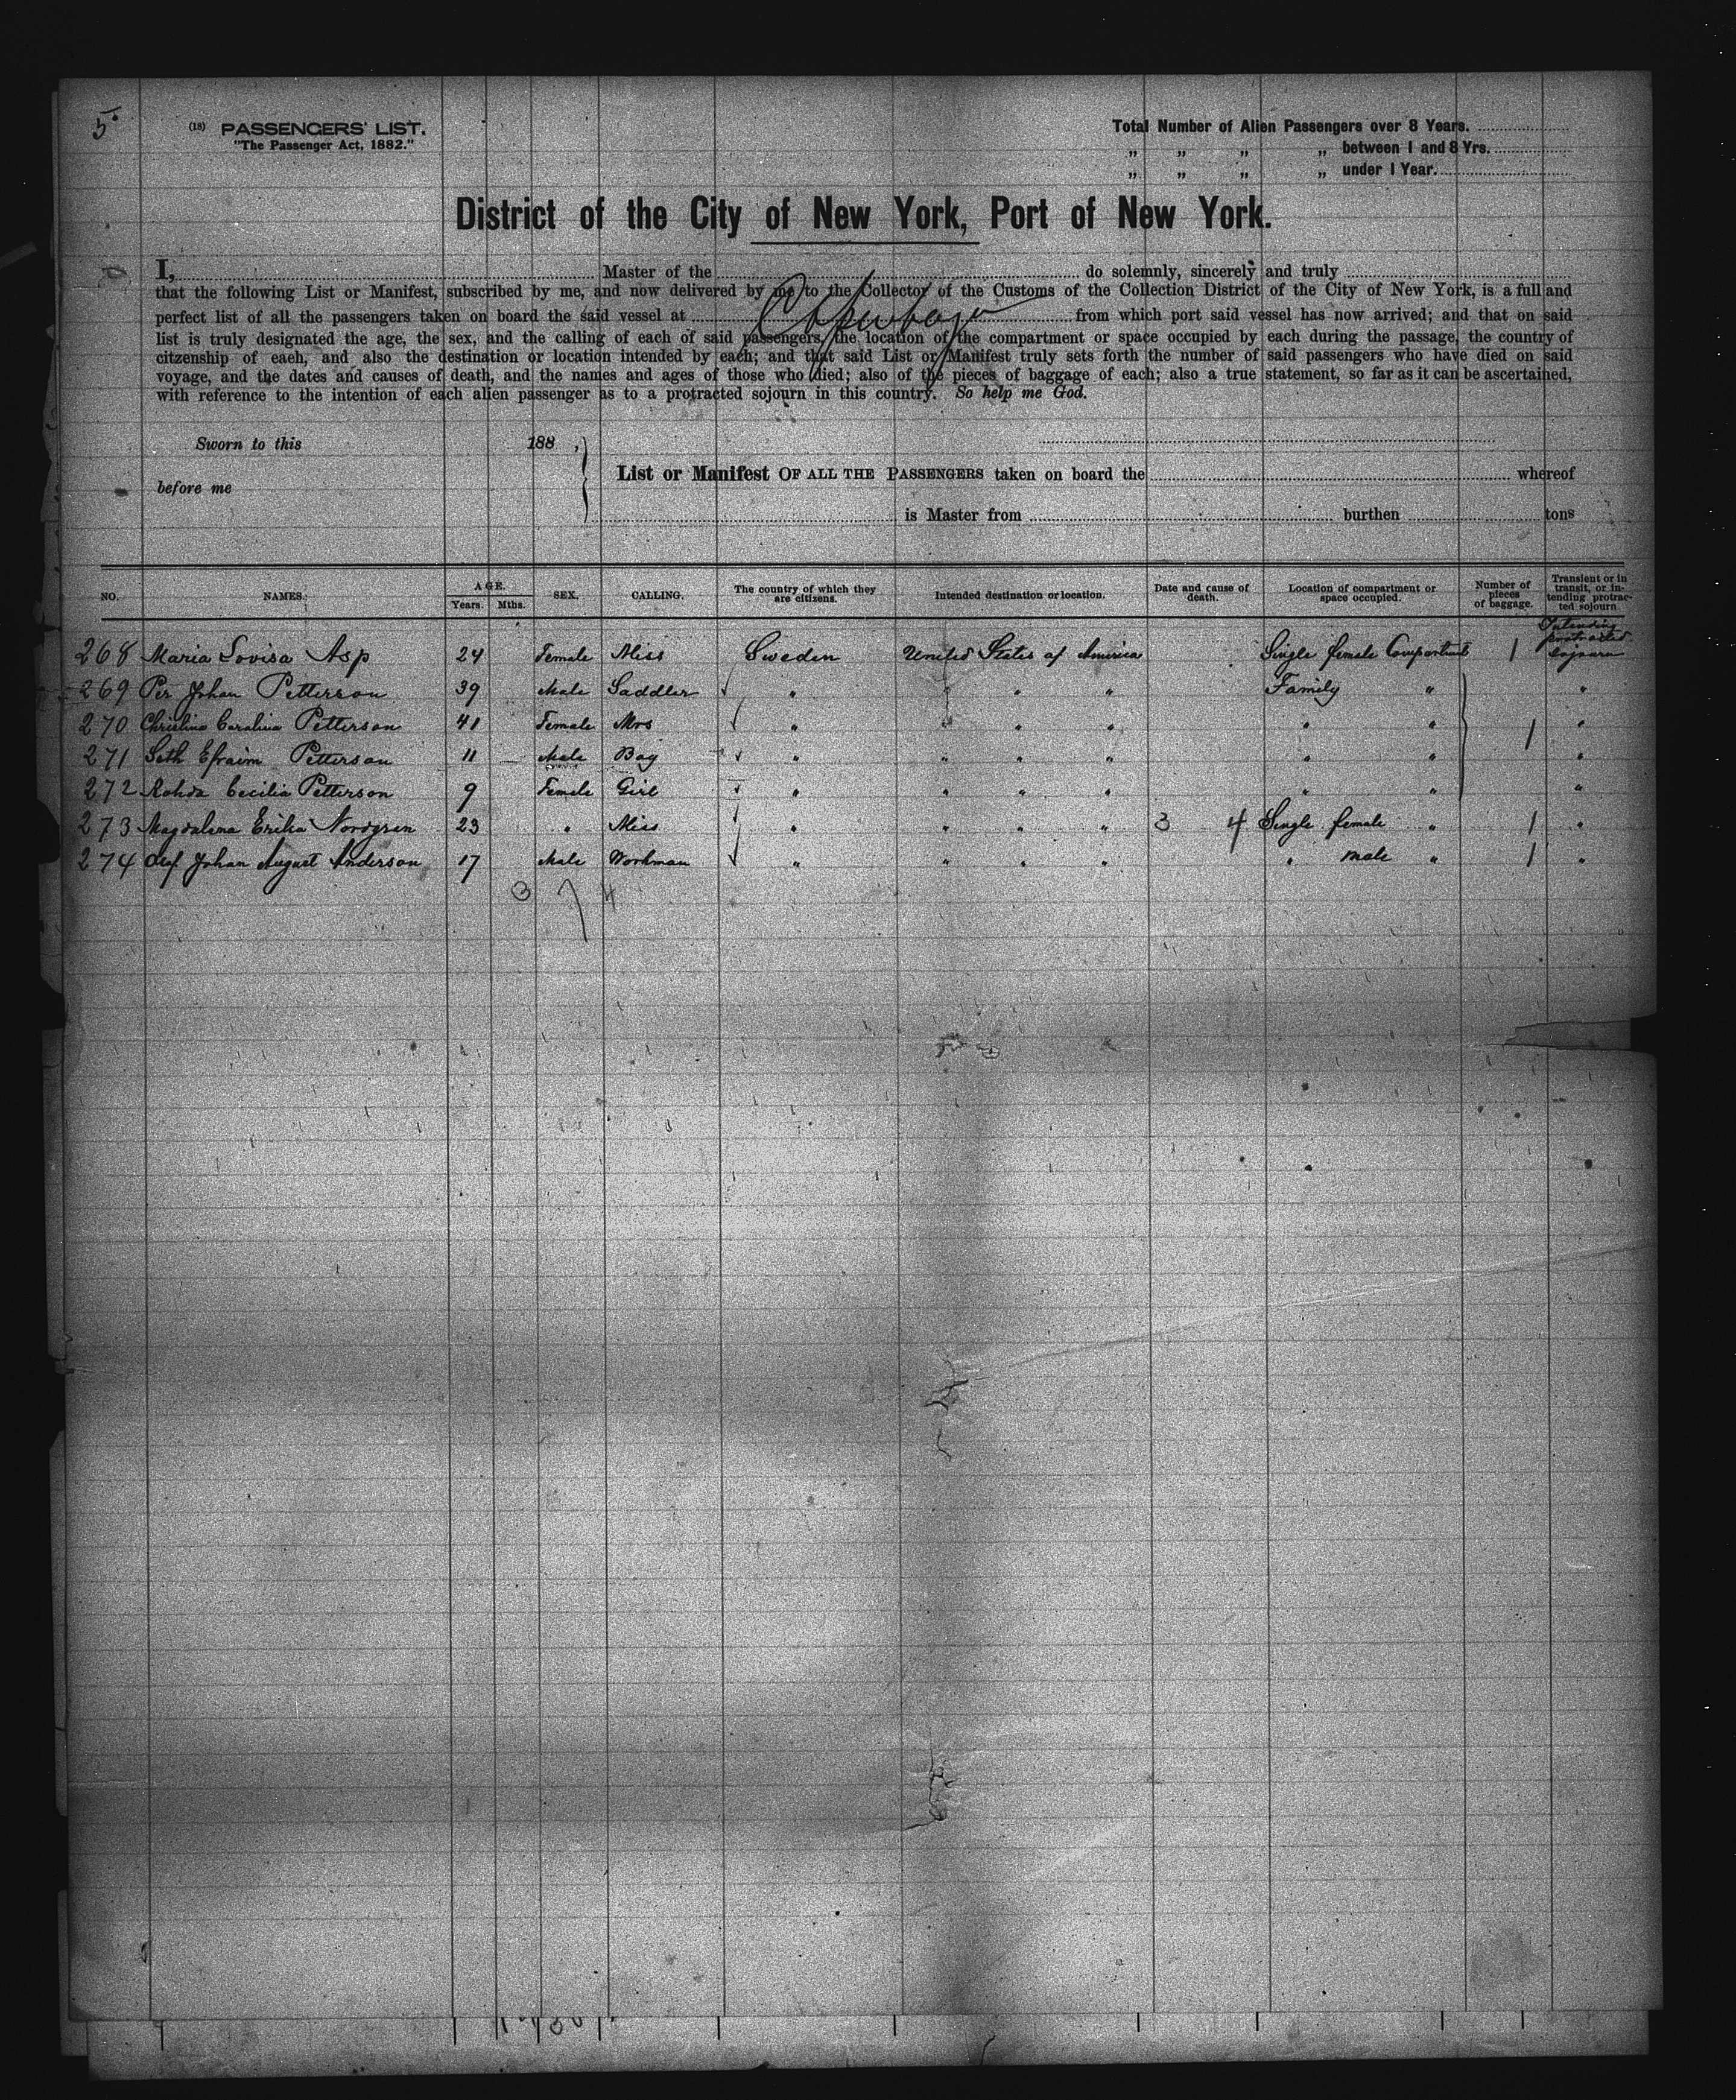 5
(18) PASSENGERS' LIST.
"The Passenger Act, 1882."
Total Number of Alien Passengers over 8 Years.
„ „ „ „ between 1 and 8 Yrs.
„ „ „ „ under 1 Year.
District of the City of New York, Port of New York.
I, Master of the do solemnly, sincerely and truly
that the following List or Manifest, subscribed by me, and now delivered by me to the Collector of the Customs of the Collection District of the City of New York, is a full and
perfect list of all the passengers taken on board the said vessel at Copenhagen from which port said vessel has now arrived; and that on said
list is truly designated the age, the sex, and the calling of each of said passengers, the location of the compartment or space occupied by each during the passage, the country of
citzenship of eaeh, and also the destination or location intended by each; and that said List or Manifest truly sets forth the number of said passengers who have died on said
voyage, and the dates and causes of death, and the names and ages of those who died; also of the pieces of baggage of each; also a true statement, so far as it can be ascertained,
with reference to the intention of each alien passenger as to a protracted sojourn in this country. So help me God.
Sworn to this 188 ,
before me
List or Manifest OF ALL THE PASSENGERS taken on board the whereof
is Master from burthen tons
NO. NAMES. AGE. Years. Mths. SEX. CALLING. The country of which they are citizens. Intended destination or location. Date and cause of death. Location of compartment or space occupied. Number of pieces of baggage. Transient or in transit, or intending protracted sojourn
268 Maria Lovisa Asp 24 Female Miss Sweden United States of America Single female Compartment 1 Intending protracted sojourn
269 Per Johan Petterson 39 Male Saddler " " " " Family " "
270 Christina Carolina Petterson 41 Female Mrs " " " " " " 1 "
271 Seth Efraim Petterson 11 Male Boy " " " " " " "
272 Rohda Cecilia Petterson 9 Female Girl " " " " " " "
273 Magdalena Erika Nordgren 23 " Miss " " " " 3 4 Single female " 1 "
274 Olof Johan August Anderson 17 Male Workman " " " " " male " 1 "
3 7 4